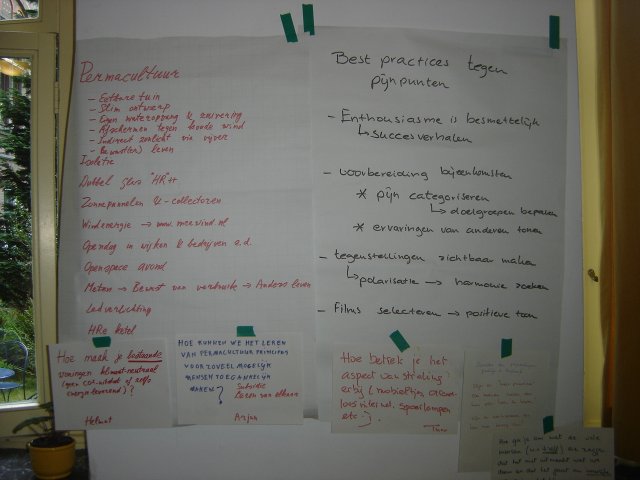 Permacultuur
- Eetbare tuin
- Slim ontwerp
- Eigen wateropvang & zuivering
- Afschermen tegen koude wind
- Indirect zonlicht via vijver
- Bewust(er) leven
Isolatie
Dubbel glas "HR"++
Zonnepanelen & -collectoren
Windenergie → www.meewind.nl
Opendag in wijken & bedrijven e.d.
Openspace avond
Meten → Bewust van verbruik → Anders leven
Ledverlichting
HRe ketel
Best practices tegen
pijnpunten
- Enthousiasme is besmettelijk
↳ succesverhalen
- voorbereiding bijeenkomsten
* pijn categoriseren
↳ doelgroepen bepalen
* ervaringen van anderen tonen
- tegenstellingen zichtbaar maken
↳ polarisatie → harmonie zoeken
- Films selecteren → positieve toon
Hoe maak je bestaande
woningen klimaat-neutraal
(geen CO2-uitstoot of zelfs
energie-leverend)?
Helmut
HOE KUNNEN WE HET LEREN
VAN PERMACULTUUR PRINCIPES
VOOR ZOVEEL MOGELIJK
MENSEN TOEGANKELIJK
MAKEN?
Subsidie
Leren van elkaar
Arjan
Hoe betrek je het
aspect van straling
erbij (mobieltjes, draad-
loos internet, spaarlampen
etc.)
Hoe ga je om met de vele
mensen
die zeggen
dat het niet uitmaakt wat we
doen en dat het gaat om